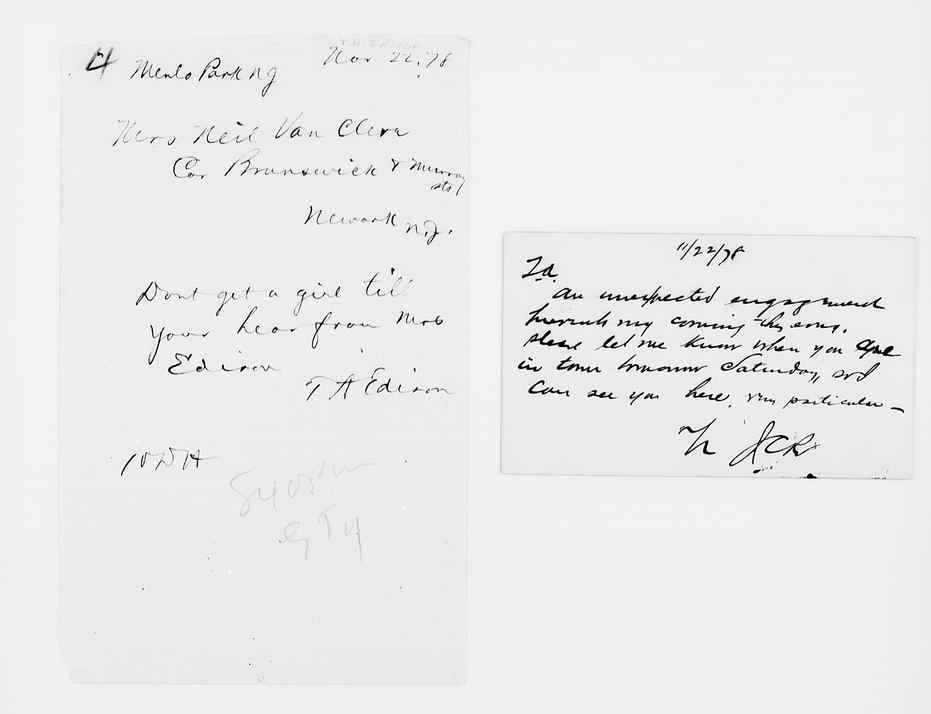 4 Menlo Park NJ Nov 22, '78
Mrs Neil Van Cleve
Cor Brunswick & Murray
sts
Newark N.J.
Dont get a girl till
your hear from Mrs
Edison
T A Edison
10 DH
GTH
11/22/78
an unexpected engagement
prevents my coming this evng.
please let me know when you are
in town tomorrow Saturday, so I
can see you here. very particular —
JCR